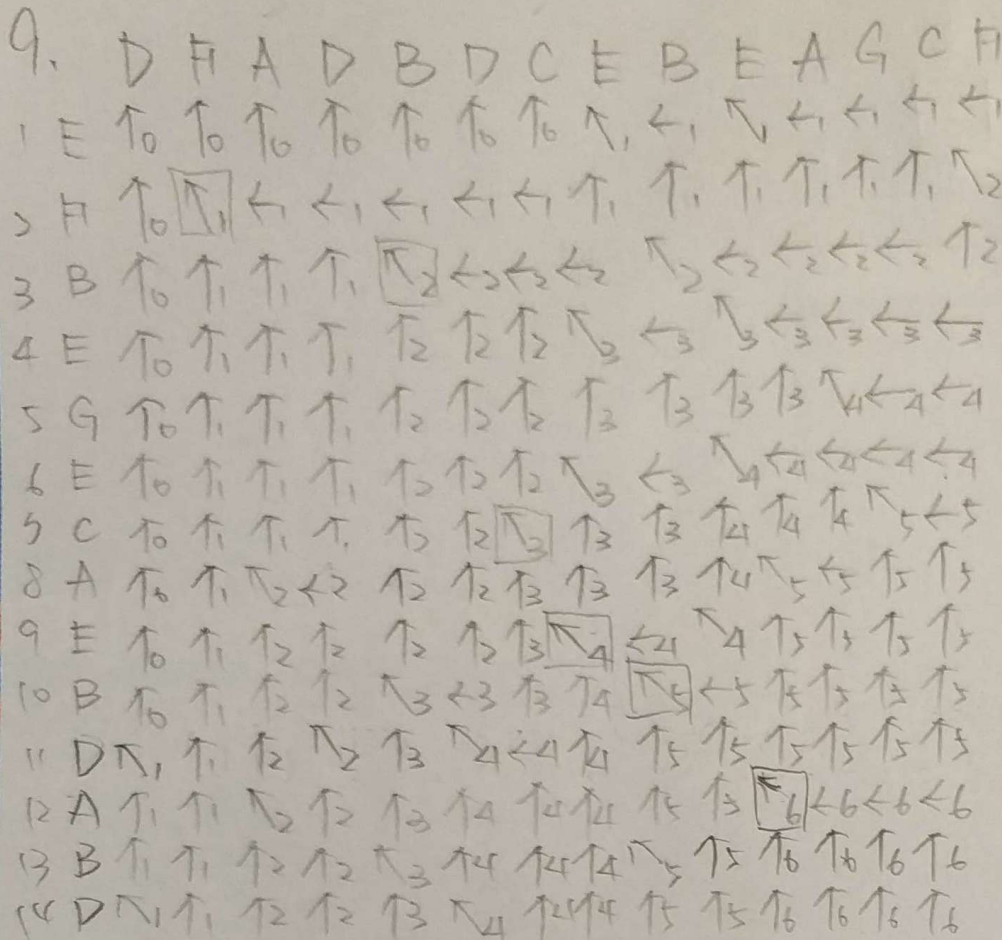 9. D F A D B D C E B E A G C F
1 E ↑0 ↑0 ↑0 ↑0 ↑0 ↑0 ↑0 ↖1 ←1 ↖1 ←1 ←1 ←1 ←1
2 F ↑0 ↖1 ←1 ←1 ←1 ←1 ←1 ↑1 ↑1 ↑1 ↑1 ↑1 ↑1 ↖2
3 B ↑0 ↑1 ↑1 ↑1 ↖2 ←2 ←2 ←2 ↖2 ←2 ←2 ←2 ←2 ↑2
4 E ↑0 ↑1 ↑1 ↑1 ↑2 ↑2 ↑2 ↖3 ←3 ↖3 ←3 ←3 ←3 ←3
5 G ↑0 ↑1 ↑1 ↑1 ↑2 ↑2 ↑2 ↑3 ↑3 ↑3 ↑3 ↖4 ←4 ←4
6 E ↑0 ↑1 ↑1 ↑1 ↑2 ↑2 ↑2 ↖3 ←3 ↖4 ←4 ←4 ←4 ←4
7 C ↑0 ↑1 ↑1 ↑1 ↑2 ↑2 ↖3 ↑3 ↑3 ↑4 ↑4 ↑4 ↖5 ←5
8 A ↑0 ↑1 ↖2 ←2 ↑2 ↑2 ↑3 ↑3 ↑3 ↑4 ↖5 ←5 ↑5 ↑5
9 E ↑0 ↑1 ↑2 ↑2 ↑2 ↑2 ↑3 ↖4 ←4 ↖4 ↑5 ↑5 ↑5 ↑5
10 B ↑0 ↑1 ↑2 ↑2 ↖3 ←3 ↑3 ↑4 ↖5 ←5 ↑5 ↑5 ↑5 ↑5
11 D ↖1 ↑1 ↑2 ↖2 ↑3 ↖4 ←4 ↑4 ↑5 ↑5 ↑5 ↑5 ↑5 ↑5
12 A ↑1 ↑1 ↖2 ↑2 ↑3 ↑4 ↑4 ↑4 ↑5 ↑5 ↖6 ←6 ←6 ←6
13 B ↑1 ↑1 ↑2 ↑2 ↖3 ↑4 ↑4 ↑4 ↖5 ↑5 ↑6 ↑6 ↑6 ↑6
14 D ↖1 ↑1 ↑2 ↑2 ↑3 ↖4 ↑4 ↑4 ↑5 ↑5 ↑6 ↑6 ↑6 ↑6